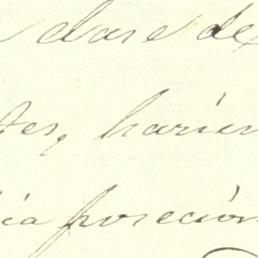 clase de
tes, harian
ia posecion